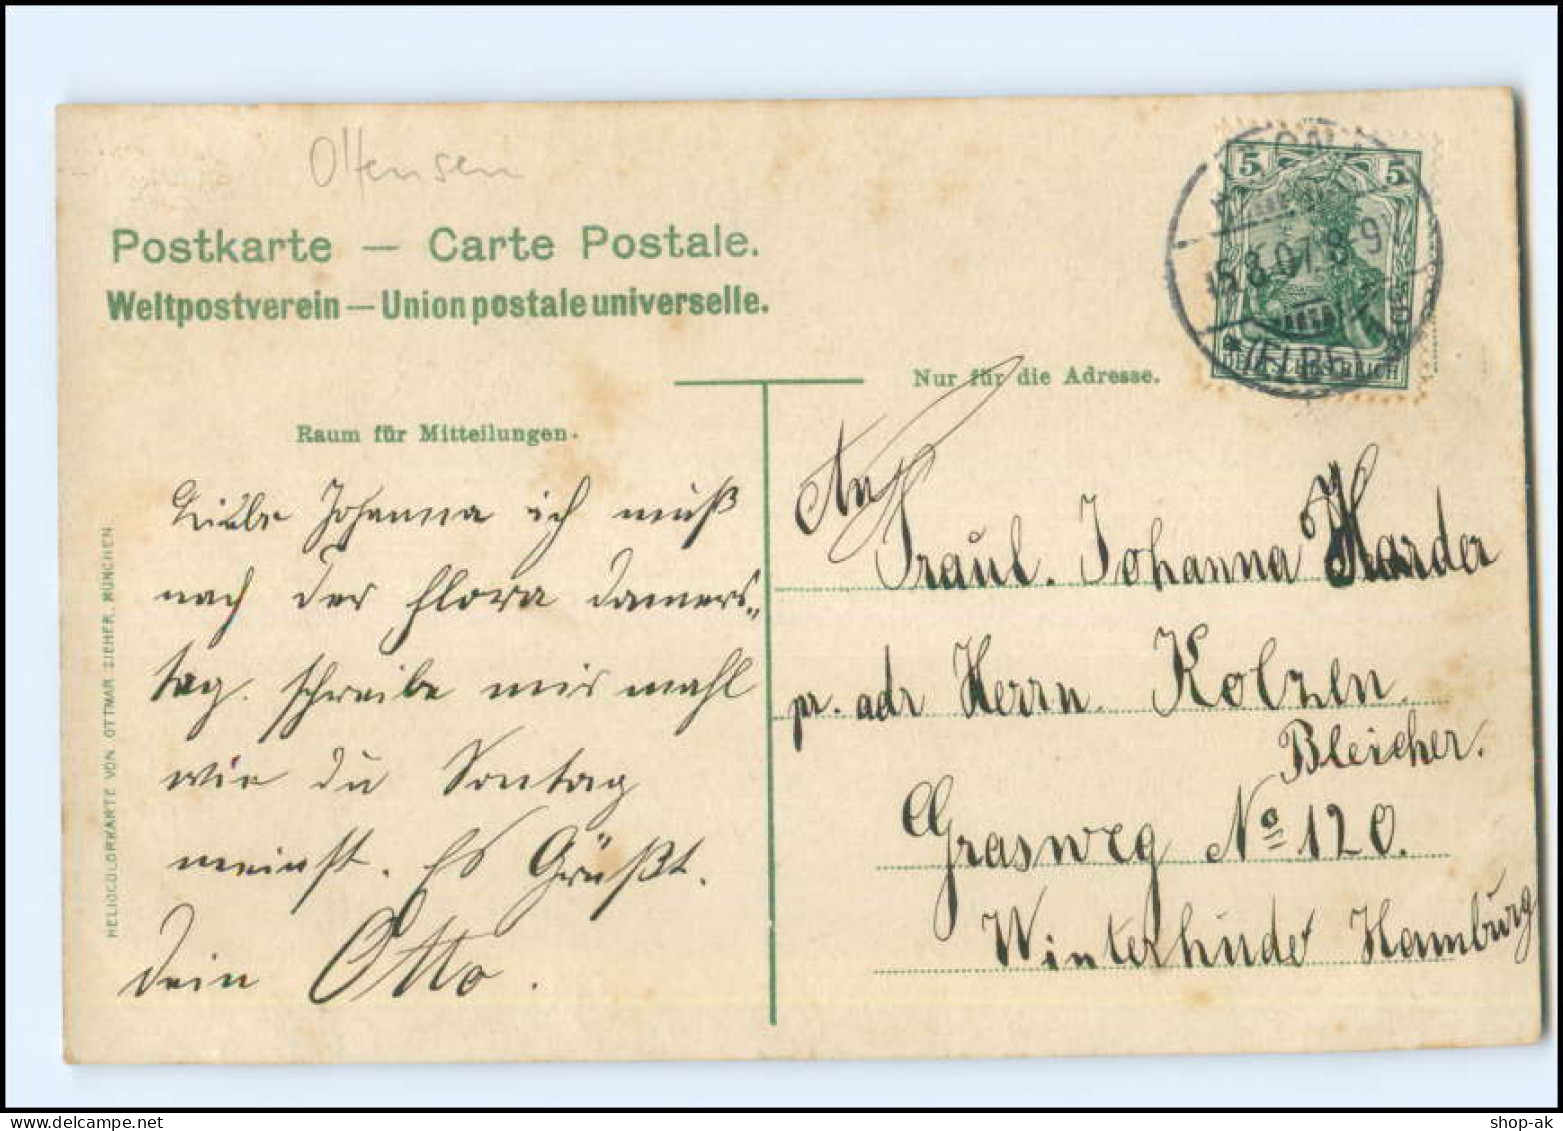 Ottensen
Postkarte — Carte Postale.
Weltpostverein — Union postale universelle.
Nur für die Adresse.
Raum für Mitteilungen.
5 5
15.8.07. 8-9
(ELBE)
DEUTSCHES REICH
Liebe Johanna ich muß
nach der Flora Donners-
tag. schreibe mir mahl
wie du Sontag
meinst. Es Grüßt.
dein Otto.
An
Fraül. Johanna Harder
pr. adr Herrn. Kolzen.
Bleicher.
Grasweg No 120.
Winterhude Hamburg
HELIOCOLORKARTE VON OTTMAR ZIEHER, MÜNCHEN
shop-ak